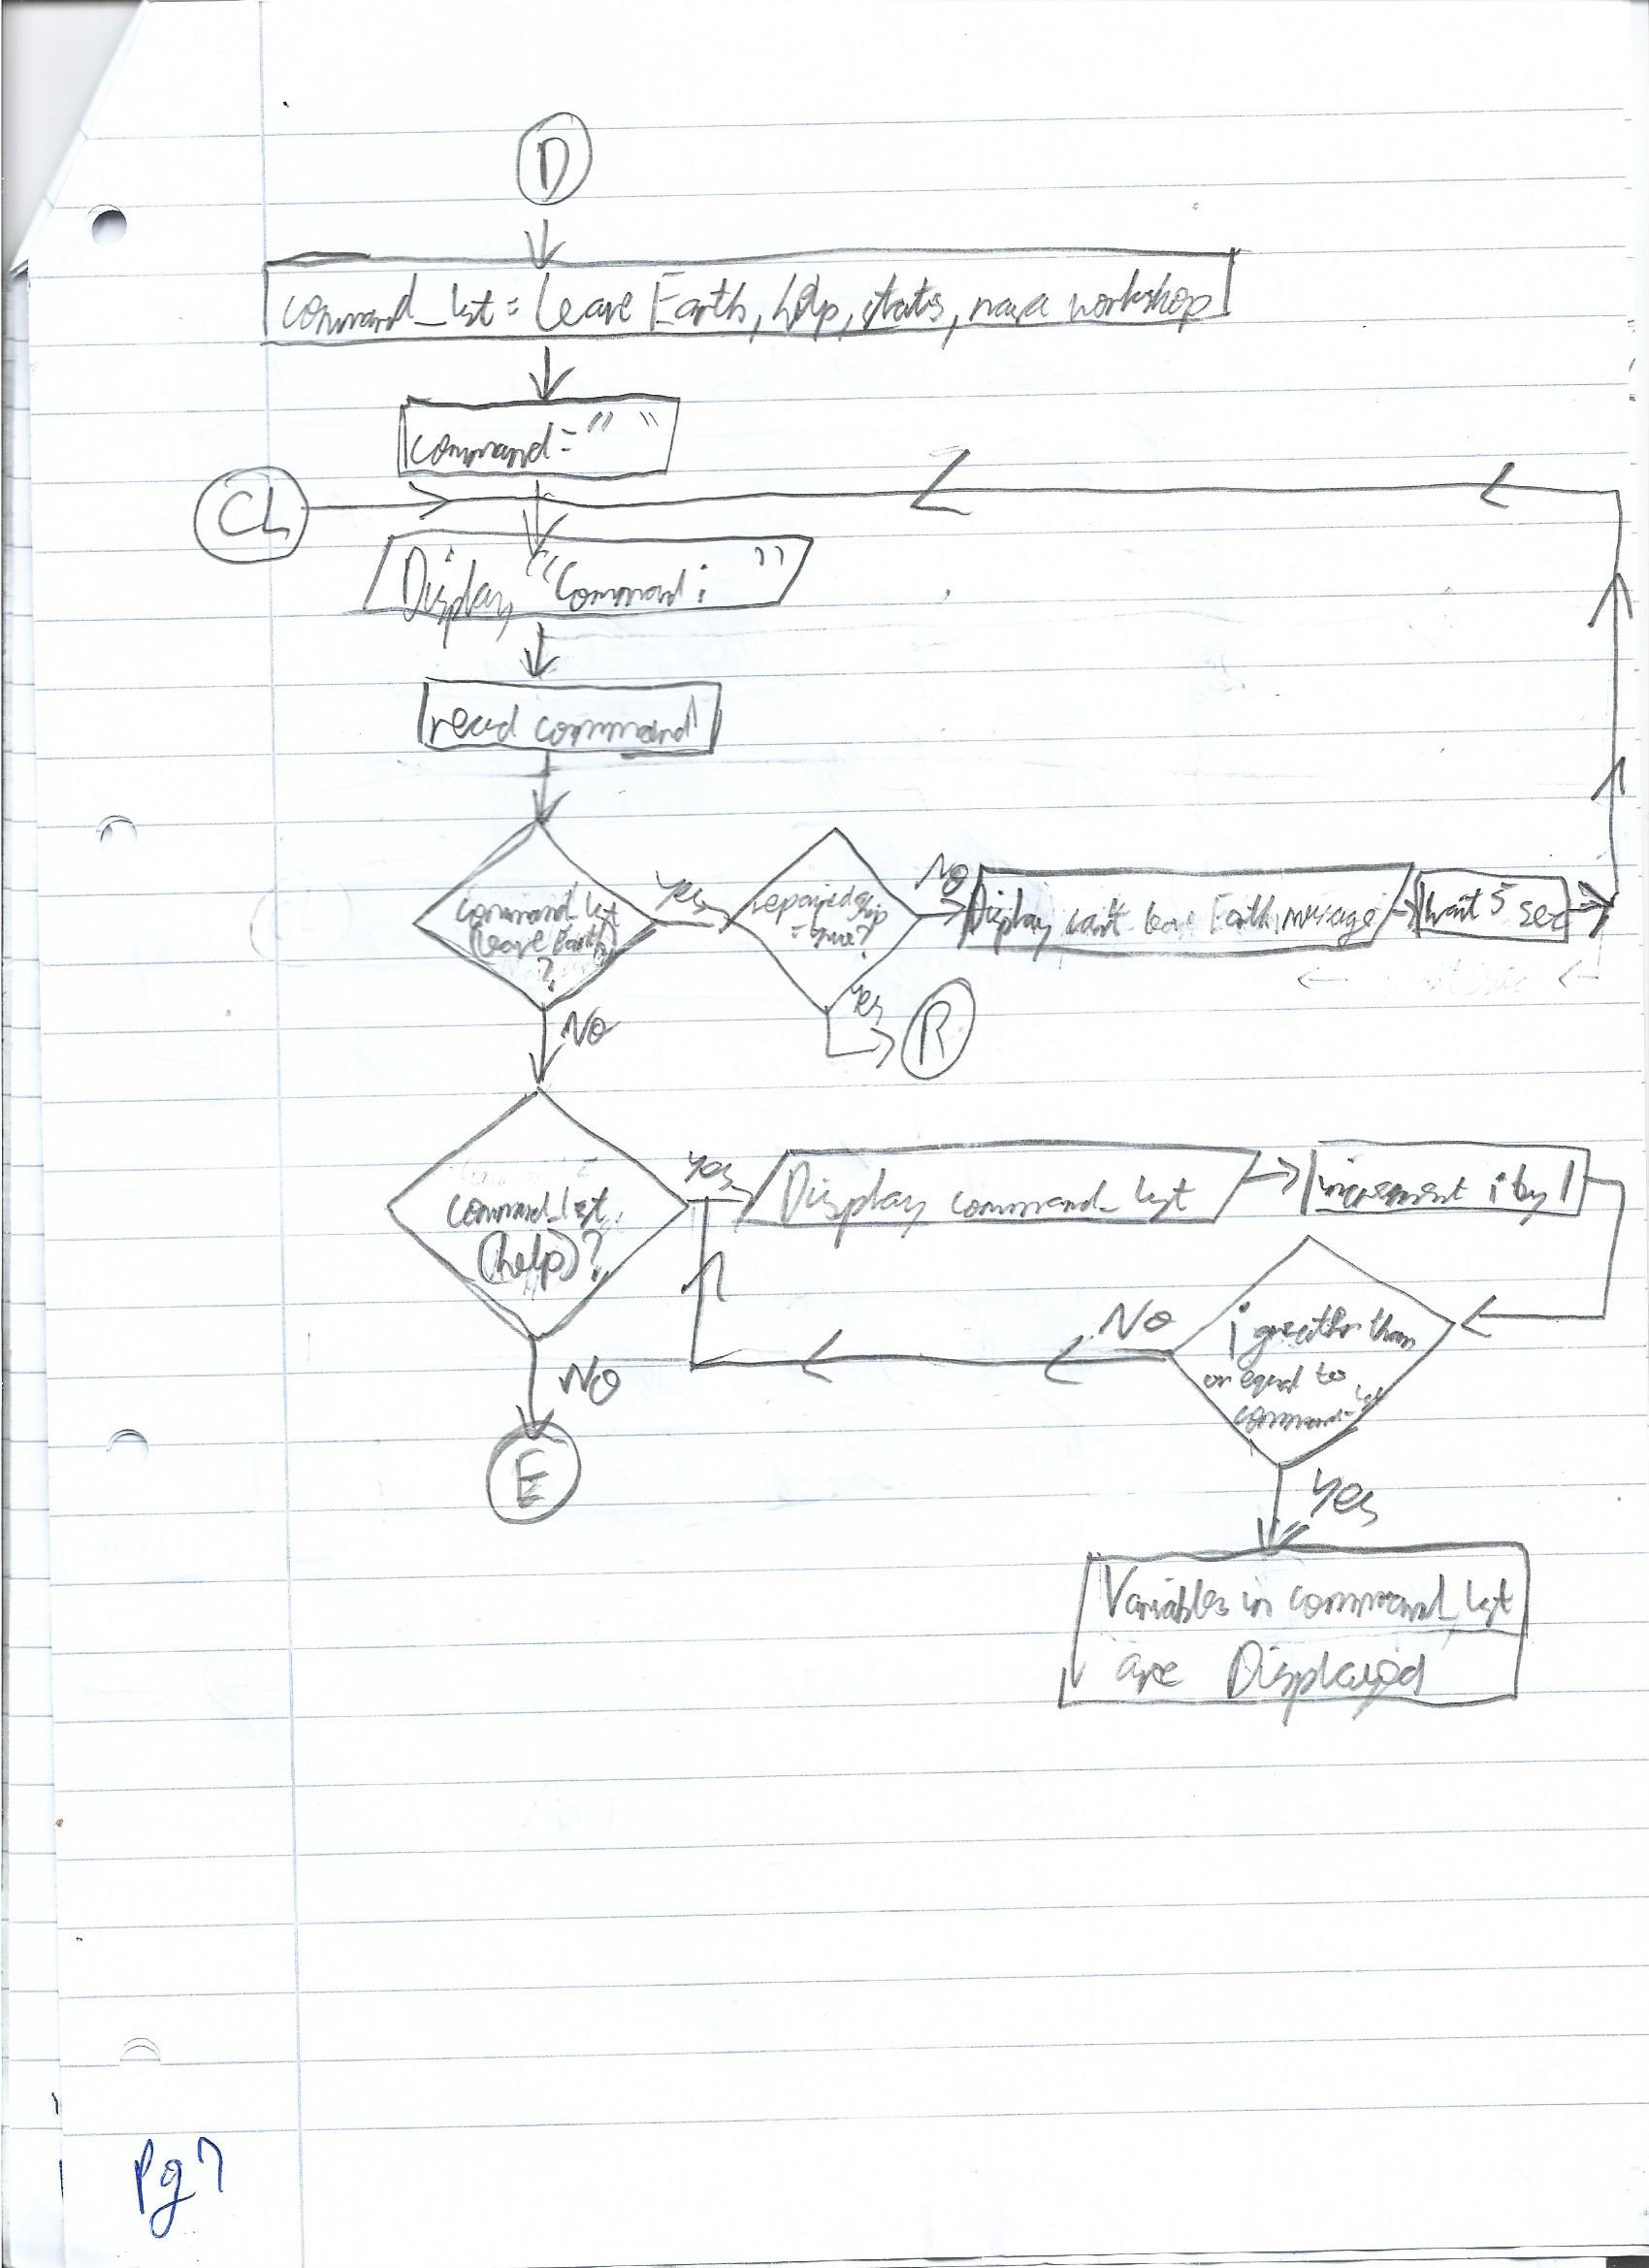 D
command_lst = Leave Earth, help, stats, nasa workshop
command = " "
CL
Display "Command: "
read command
command_lst
(leave Earth)
?
Yes
repairedship
= true?
No
Display can't leave Earth message
wait 5 sec
Yes
R
No
command_lst
(help)?
Yes
Display command_lst
increment i by 1
i greater than
or equal to
command_lst
No
No
E
Yes
Variables in command_lst
are Displayed
Pg 7